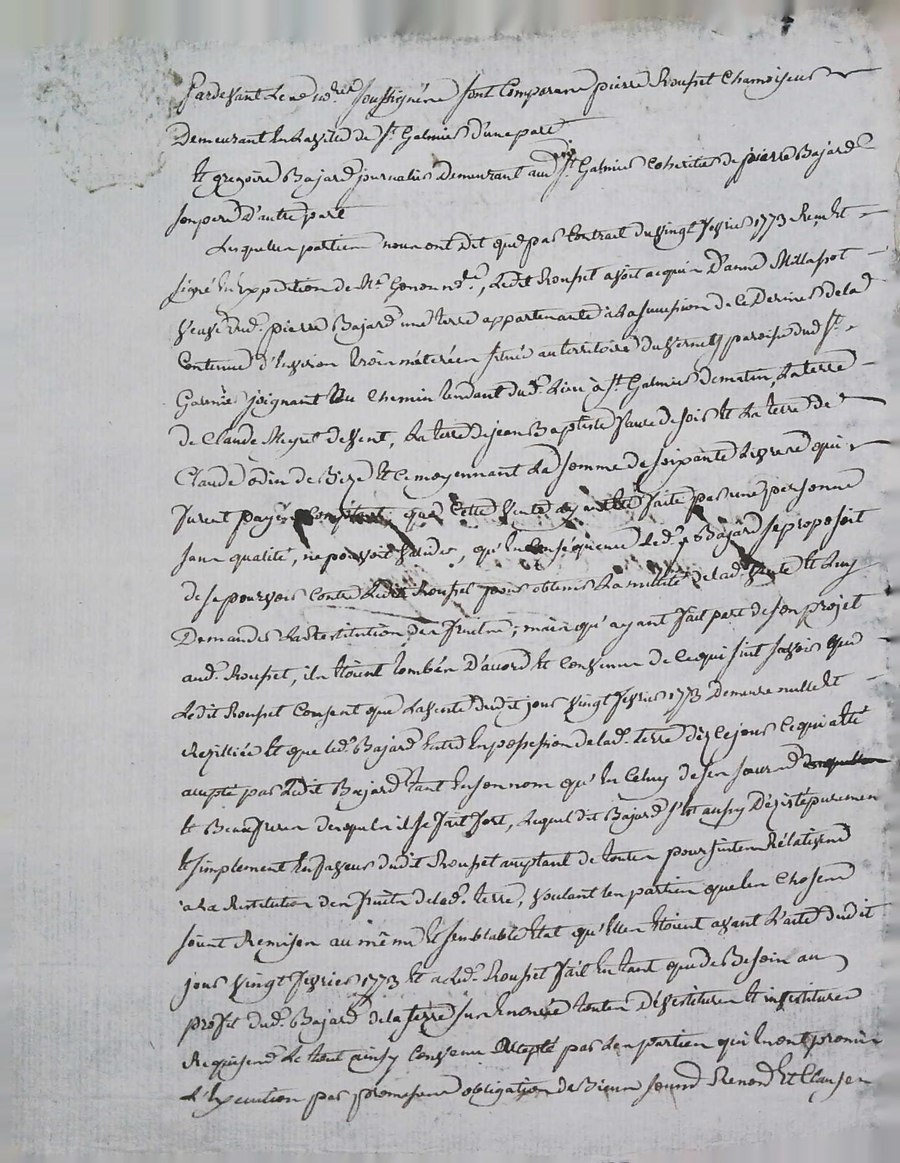 Pardevant Le no.re soussigné sont Comparu pierre Rousset Chamoiseur
Demeurant En La ville de St. Galmier d'une part
Et gregoire Bajard journalier Demeurant aud. St. Galmier coheritier de pierre Bajard
son pere D'autre part
Lesquelles parties nous ont dit que par Contrat du vingt fevrier 1773 Reçu Et
signé En Expedition de Me. Gonon no.re, Ledit Rousset avoit acquis D'anne Millapot
veuve dud. pierre Bajard une terre appartenante à La succession de ce Dernier de la
Contenue d'Environ trois méterées située au territoire du vernet paroisse dud. St.
Galmier joignant Un Chemin tendant dud. Lieu à St. Galmier de matin, La terre
de Claude Meyret de vent, La terre de jean Baptiste faure de soir Et La terre de
Claude odin de Bize Et ce moyennant La somme de soixante Livres qui
furent payés Comptant, que Cette vente ayant été faite par une personne
sans qualité, ne pouvoit valider, qu'En Conséquence Led. Bajard se proposoit
de se pourvoir Contre Ledit Rousset pour obtenir La nullité de lad. vente Et Luy
Demander La Restitution des fruits; mais qu'ayant fait part de son projet
aud. Rousset, ils Etoient tombés D'accord Et Convenu de ce qui suit savoir que
Ledit Rousset Consent que La vente dudit jour vingt fevrier 1773 Demeure nulle Et
Rezilliée Et que led. Bajard Entre En possession de lad. terre dèz ce jour Ce qui a été
accepté par Ledit Bajard tant En son nom qu'En Celuy de ses soeurs
Et Beaufreres desquels il se fait fort, Lequel dit Bajard s'est aussy Désisté purement
Et simplement En faveur dudit Rousset acceptant de toutes poursuites Rélatives
a La Restitution des fruits de lad. terre, voulant les parties que les Choses
soient Remises au même Et semblable Etat qu'Elles Etoient avant L'acte dudit
jour vingt fevrier 1773 Et a Led. Rousset fait En tant que de Besoin au
profit dud. Bajard de la terre sus Enoncée toutes Dévestitures Et investitures
Requises Le tout ainsy Convenu accepté par Les parties qui En ont promis
L'Execution par promesses obligation de Biens soumis. Renon. Et Clauses